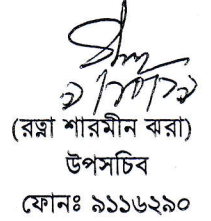 (রত্না শারমীন ঝরা)
উপসচিব
ফোনঃ ৯১১৬২৯০